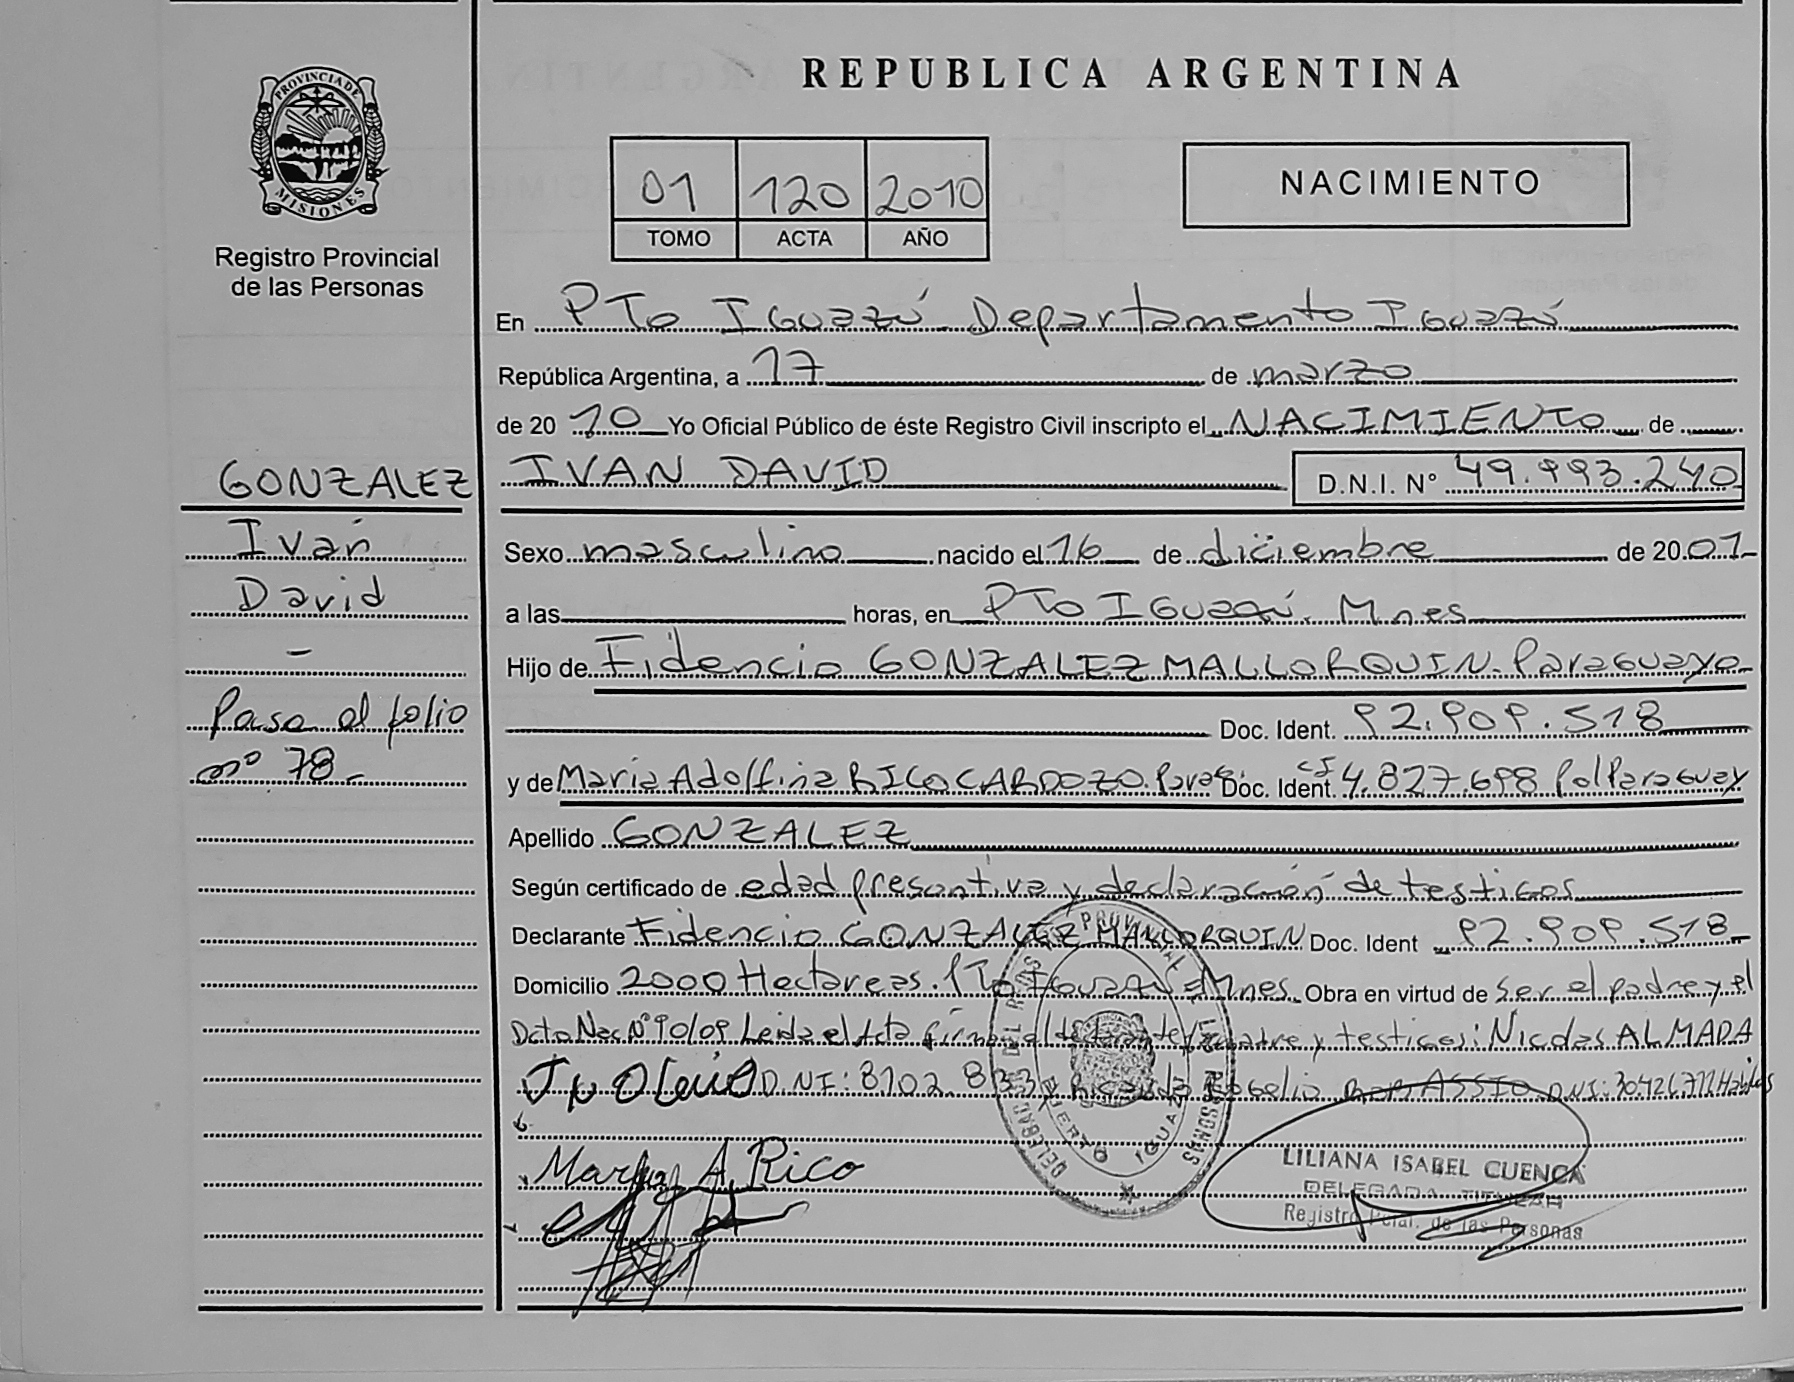 PROVINCIA DE
MISIONES
Registro Provincial
de las Personas
REPUBLICA ARGENTINA
01 120 2010
TOMO ACTA AÑO
NACIMIENTO
En PTo Iguazú Departamento Iguazú
República Argentina, a 17 de marzo
de 20 10 Yo Oficial Público de éste Registro Civil inscripto el NACIMIENTO de
GONZALEZ IVAN DAVID D.N.I. N° 49.993.240
Iván
David
-
Pasa al folio
nº 78-
Sexo masculino nacido el 16 de diciembre de 20 01-
a las horas, en PTo Iguazú. Mnes
Hijo de Fidencio GONZALEZ MALLORQUIN. Paraguayo-
Doc. Ident. 92.909.518
y de Maria Adolfina RICO CARDOZO. Parag. Doc. Ident. CI 4.827.698 Pol Paraguay
Apellido GONZALEZ
Según certificado de edad presuntiva y declaración de testigos
Declarante Fidencio GONZALEZ MALLORQUIN Doc. Ident 92.909.518-
Domicilio 2000 Hectareas. PTo Iguazú Mnes. Obra en virtud de ser el padre y el
Dcto Nac N° 90/09 Leida el Acta firma el declarante, madre y testigos: Nicolas ALMADA
D.NI: 8102.833 Ricardo Rogelio DNI:
Maria A. Rico
DELEGADO DEL REGISTRO PROVINCIAL DE LAS PERSONAS
PUERTO IGUAZU
LILIANA ISABEL CUENCA
DELEGADA TITULAR
Registro Pcial. de las Personas